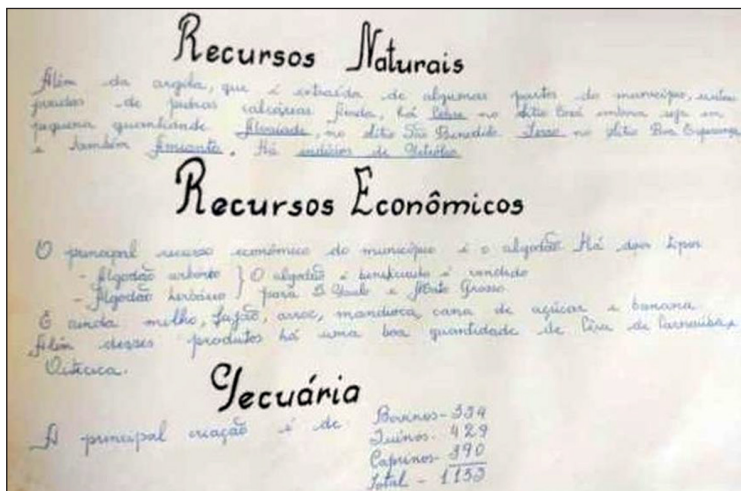 Recursos Naturais
Além da argila, que é extraída de algumas partes do município, existe
pedras de pedras calcárias. Ainda, há Cobre no sítio embora seja em
pequena quantidade Alvaiade, no sítio São Benedito. Ferro no sítio Boa Esperança
e também Amianto. Há indícios de Petróleo
Recursos Econômicos
O principal recurso econômico do município é o algodão. Há dois tipos
- Algodão arbóreo } O algodão é beneficiado e vendido
- Algodão herbáceo } para S. Paulo e Mato Grosso
E ainda milho, fejão, arroz, mandioca, cana de açúcar e banana.
Além desses produtos há uma boa quantidade de Cêra de Carnaúba,
Oiticica.
Pecuária
A principal criação é de Bovinos - 334
Suínos - 429
Caprinos - 390
Total - 1153